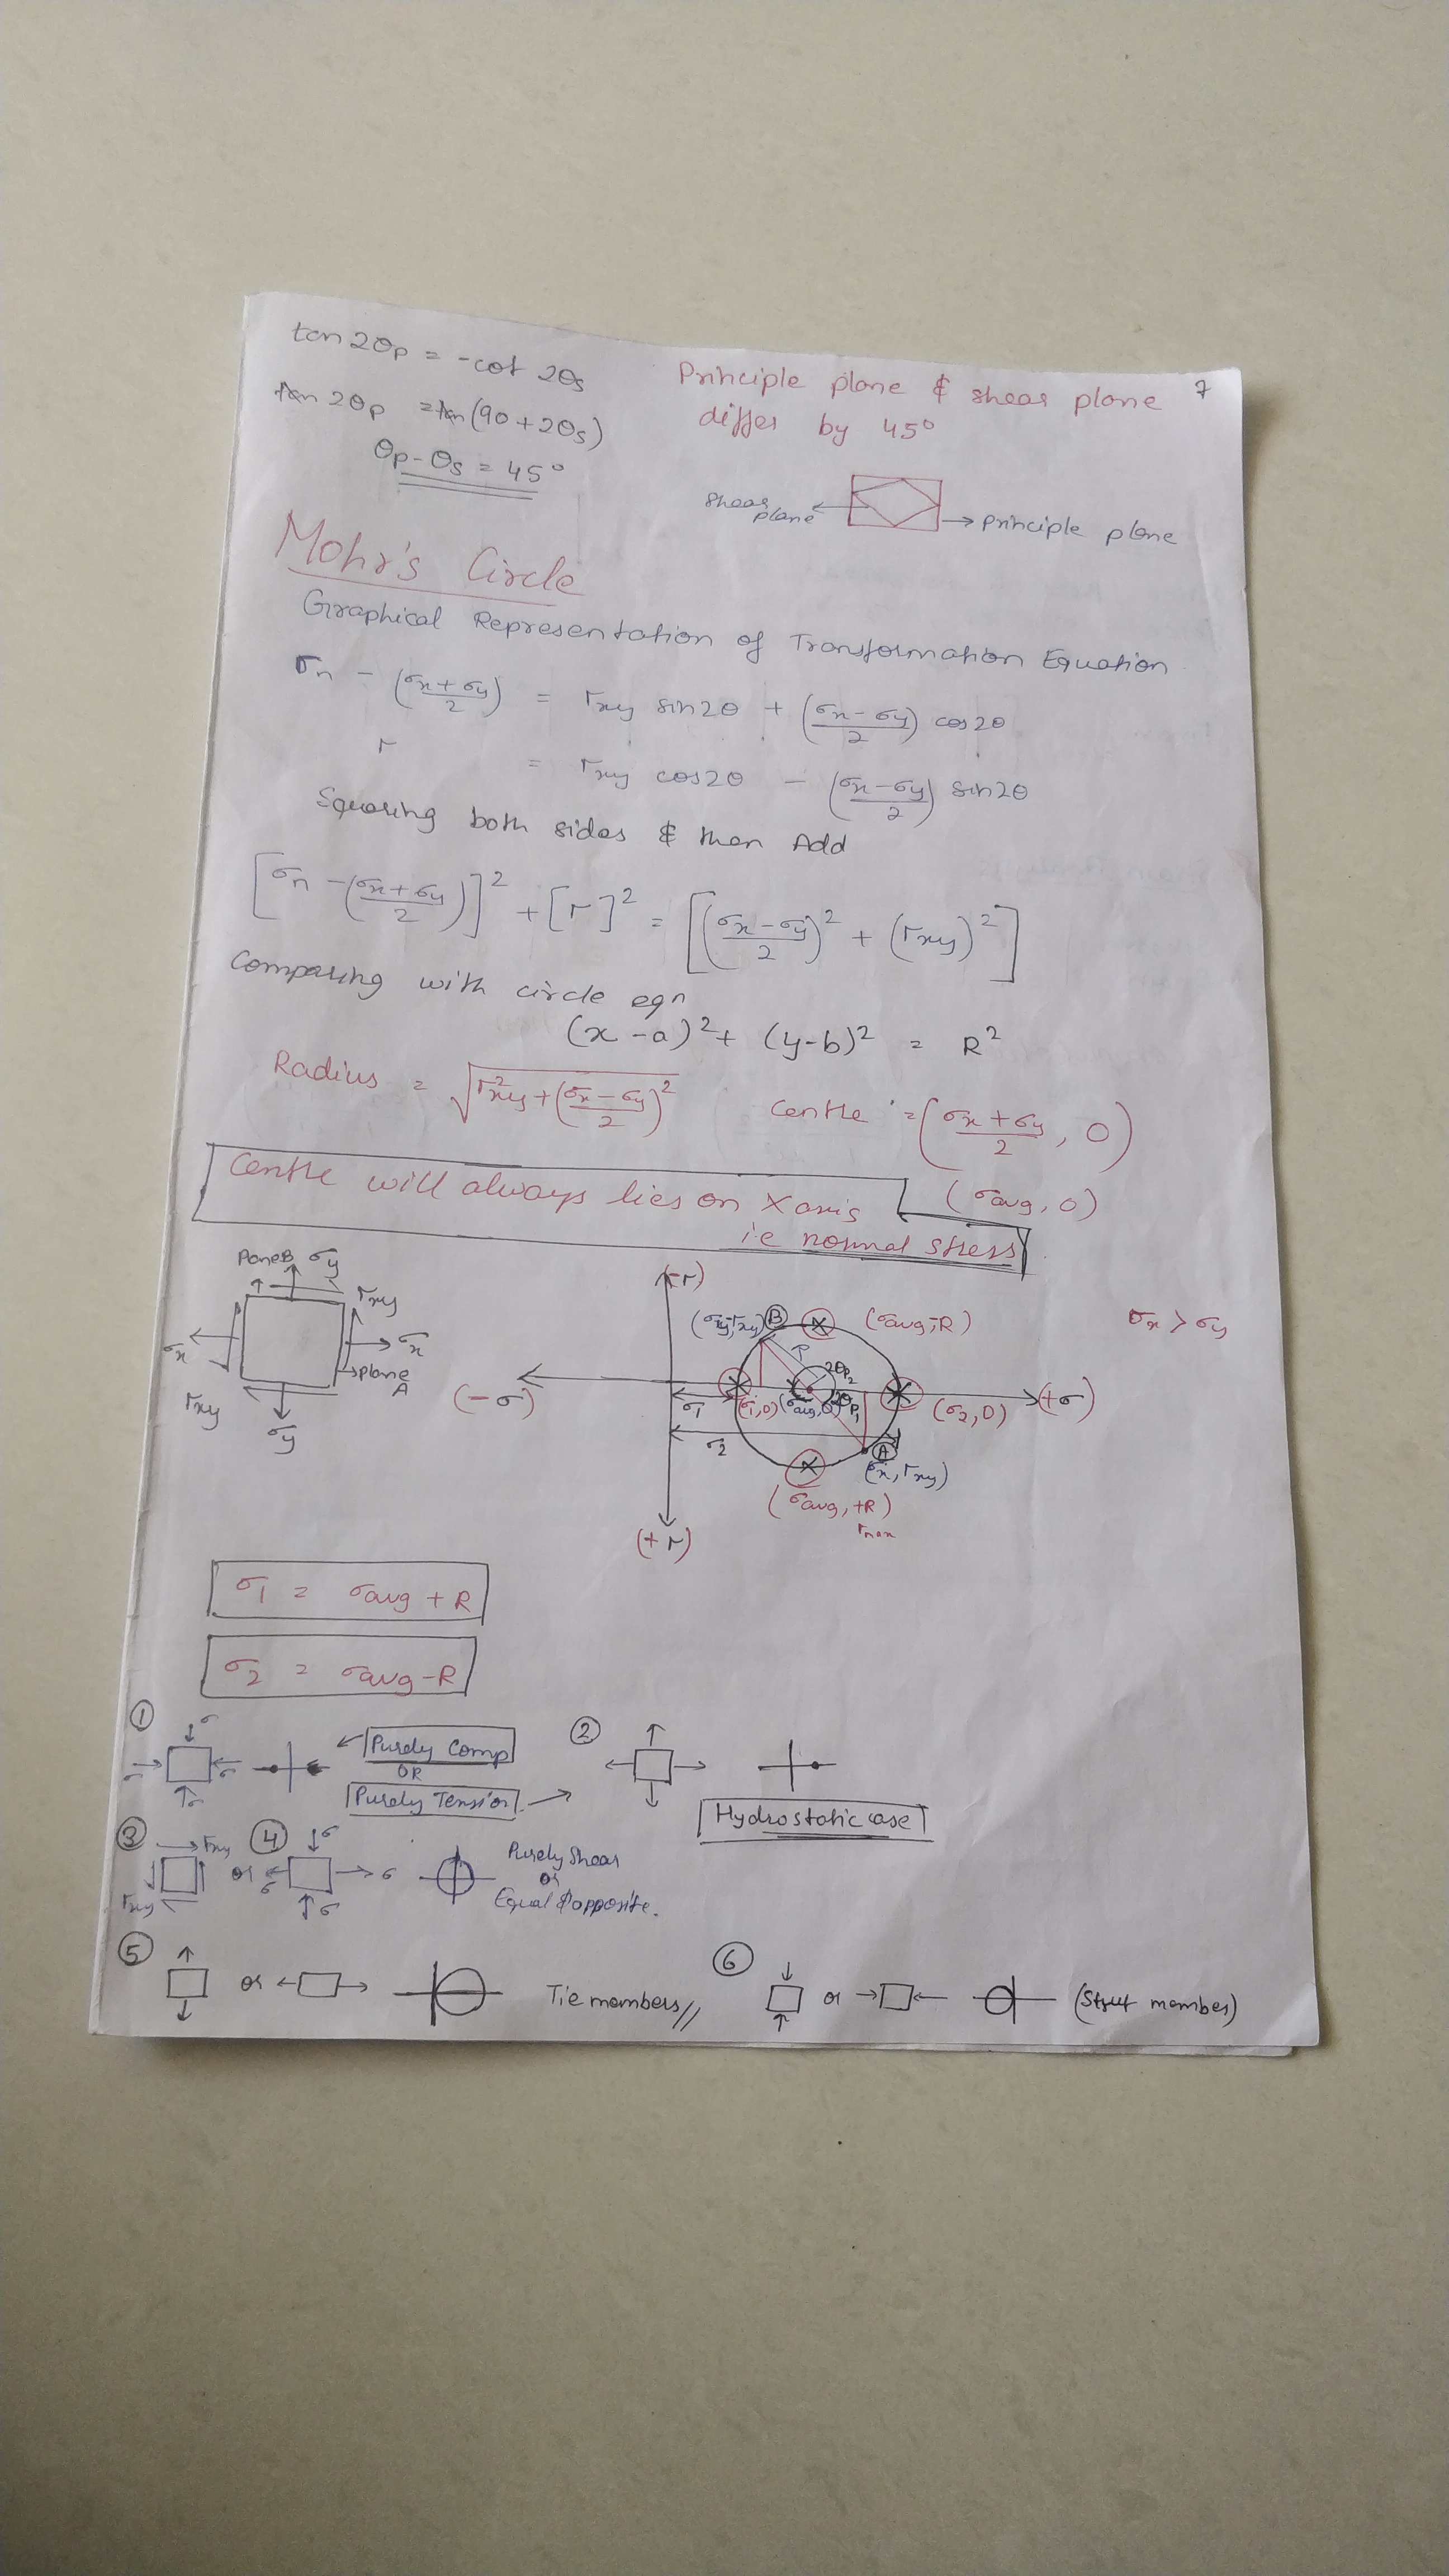 tan 2θp = -cot 2θs
tan 2θp = tan(90+2θs)
θp - θs = 45°
Principle plane & shear plane
differ by 45°
7
shear plane
Principle plane
Mohr's Circle
Graphical Representation of Transformation Equation
σn - (σx+σy/2) = τxy sin2θ + (σx-σy/2) cos2θ
τ = τxy cos2θ - (σx-σy/2) sin2θ
Squaring both sides & then Add
[σn - (σx+σy/2)]² + [τ]² = [(σx-σy/2)² + (τxy)²]
Comparing with circle eqn
(x-a)² + (y-b)² = R²
Radius = √τ²xy + (σx-σy/2)²
Centre = (σx+σy/2, 0)
(σavg, 0)
Centre will always lies on X axis
i.e normal stress
Pane B σy
τxy
σx
σx
plane A
τxy
σy
(-τ)
(σy, -τxy) B
(σavg, -R)
σx > σy
R
2θp2
2θp1
(-σ)
(+σ)
σ1
(σ1,0) (σavg,0)
(σ2,0)
σ2
A
(σx, τxy)
(σavg, +R)
τmax
(+τ)
σ1 = σavg + R
σ2 = σavg - R
① σ σ σ σ
Purely Comp
OR
Purely Tension
②
Hydrostatic case
③ τxy τxy
or
④ σ σ σ σ
Purely Shear
or
Equal & opposite.
⑤ or Tie members //
⑥ or (Strut member)